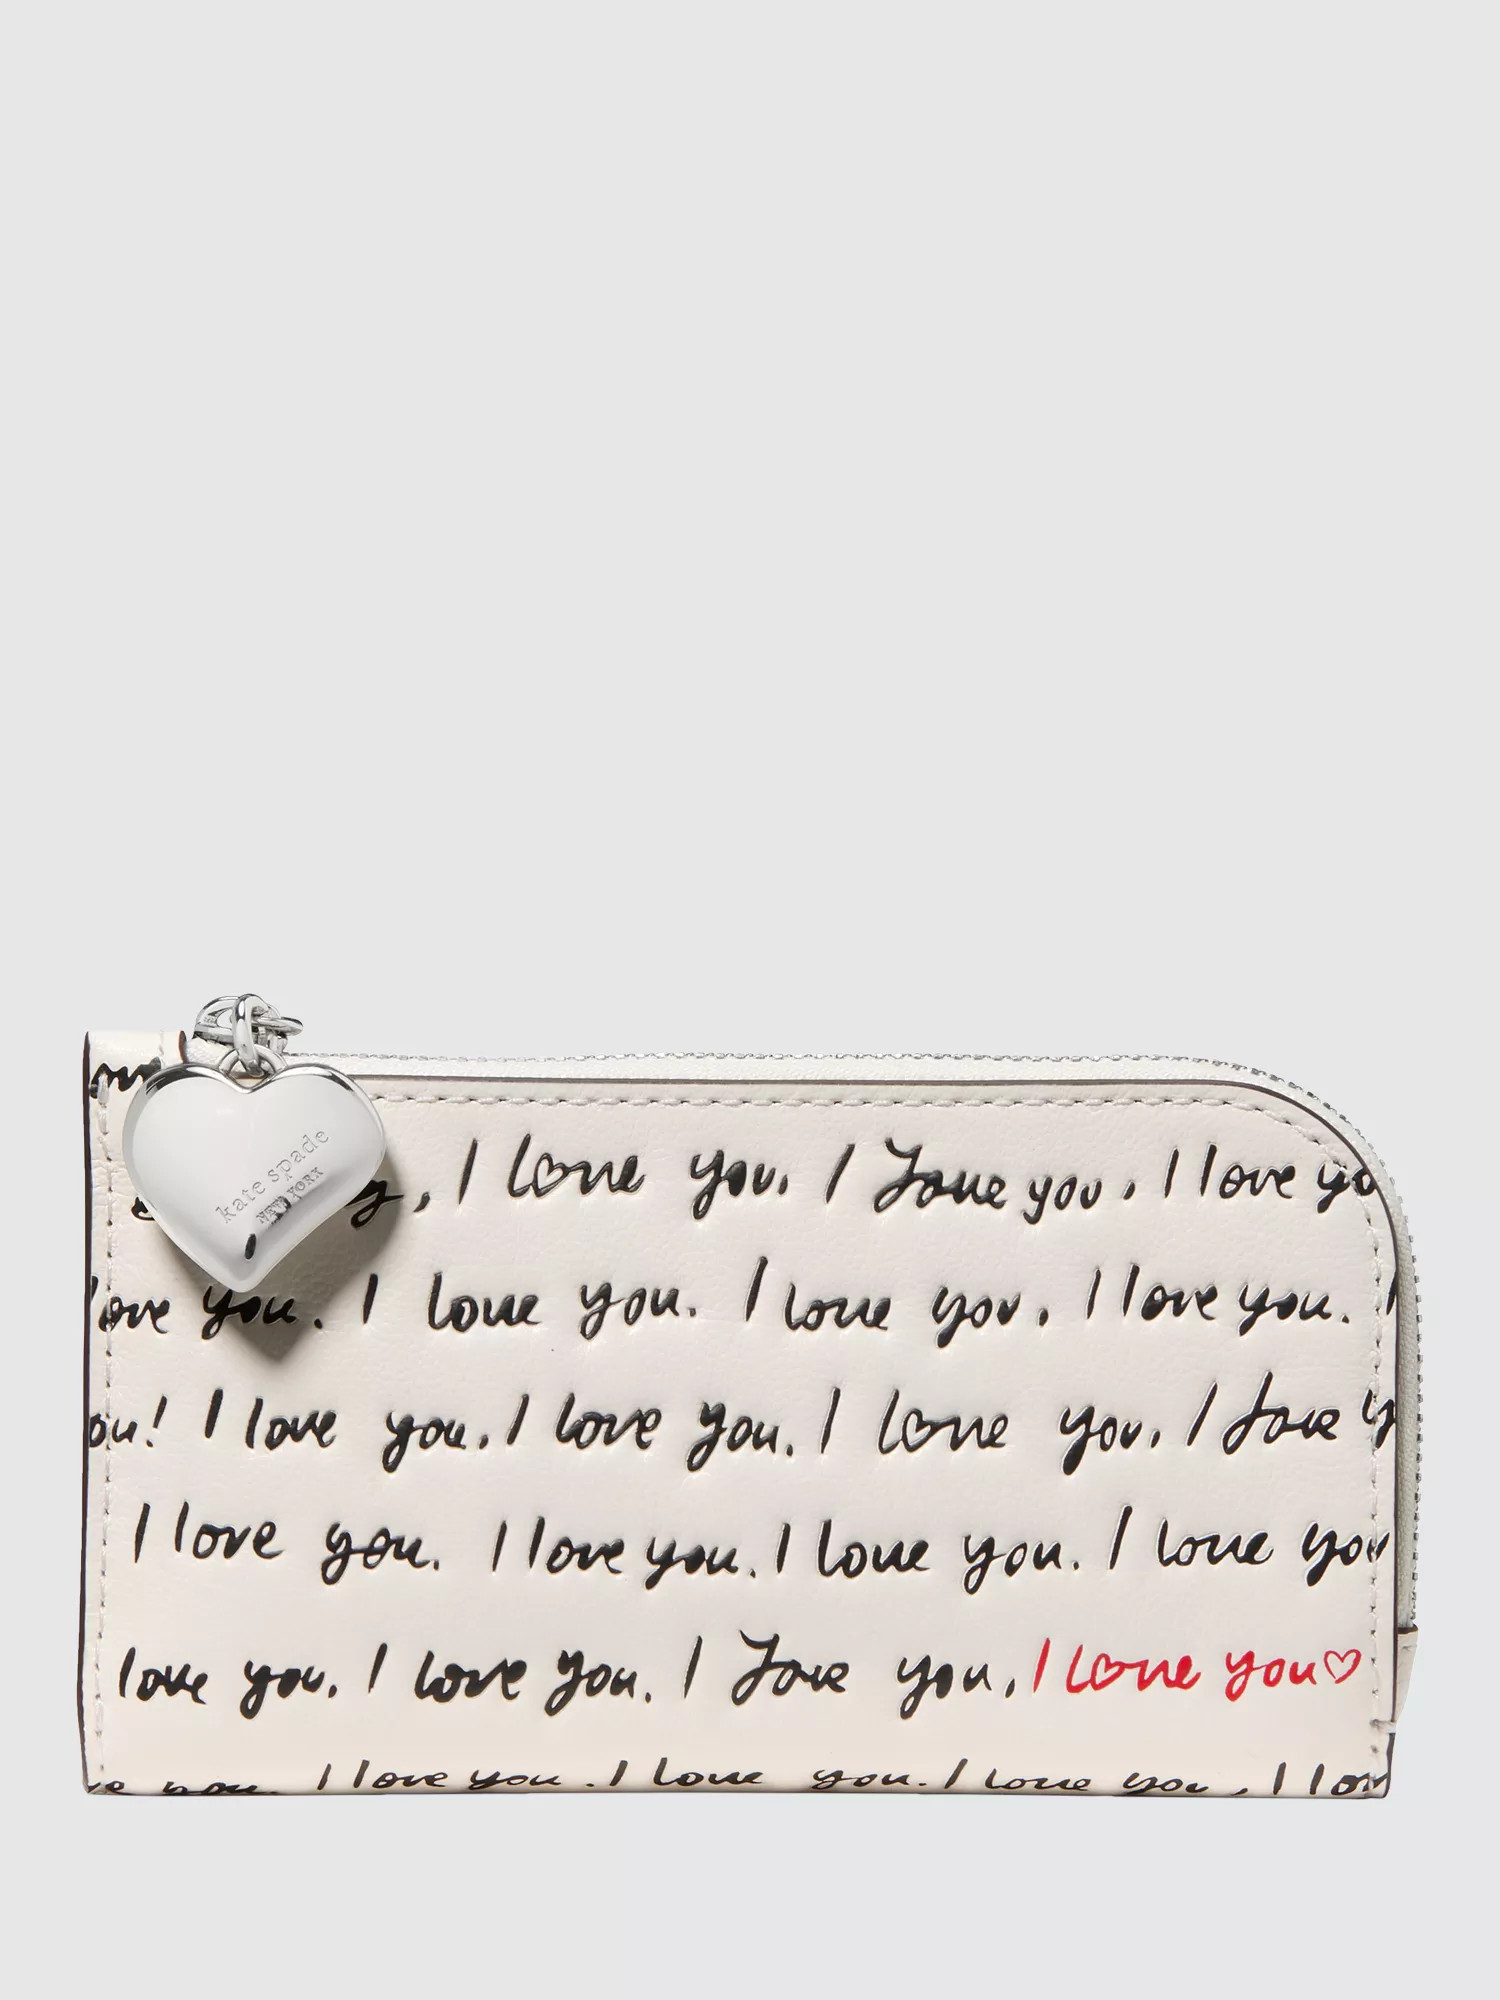 kate spade
NEW YORK
, I love you. I love you. I love yo
love you. I love you. I love you. I love you. I
ou! I love you. I love you. I love you. I love y
I love you. I love you. I love you. I love you
love you. I love you. I love you. I love you♡
ve you. I love you. I love you. I love you, I lov